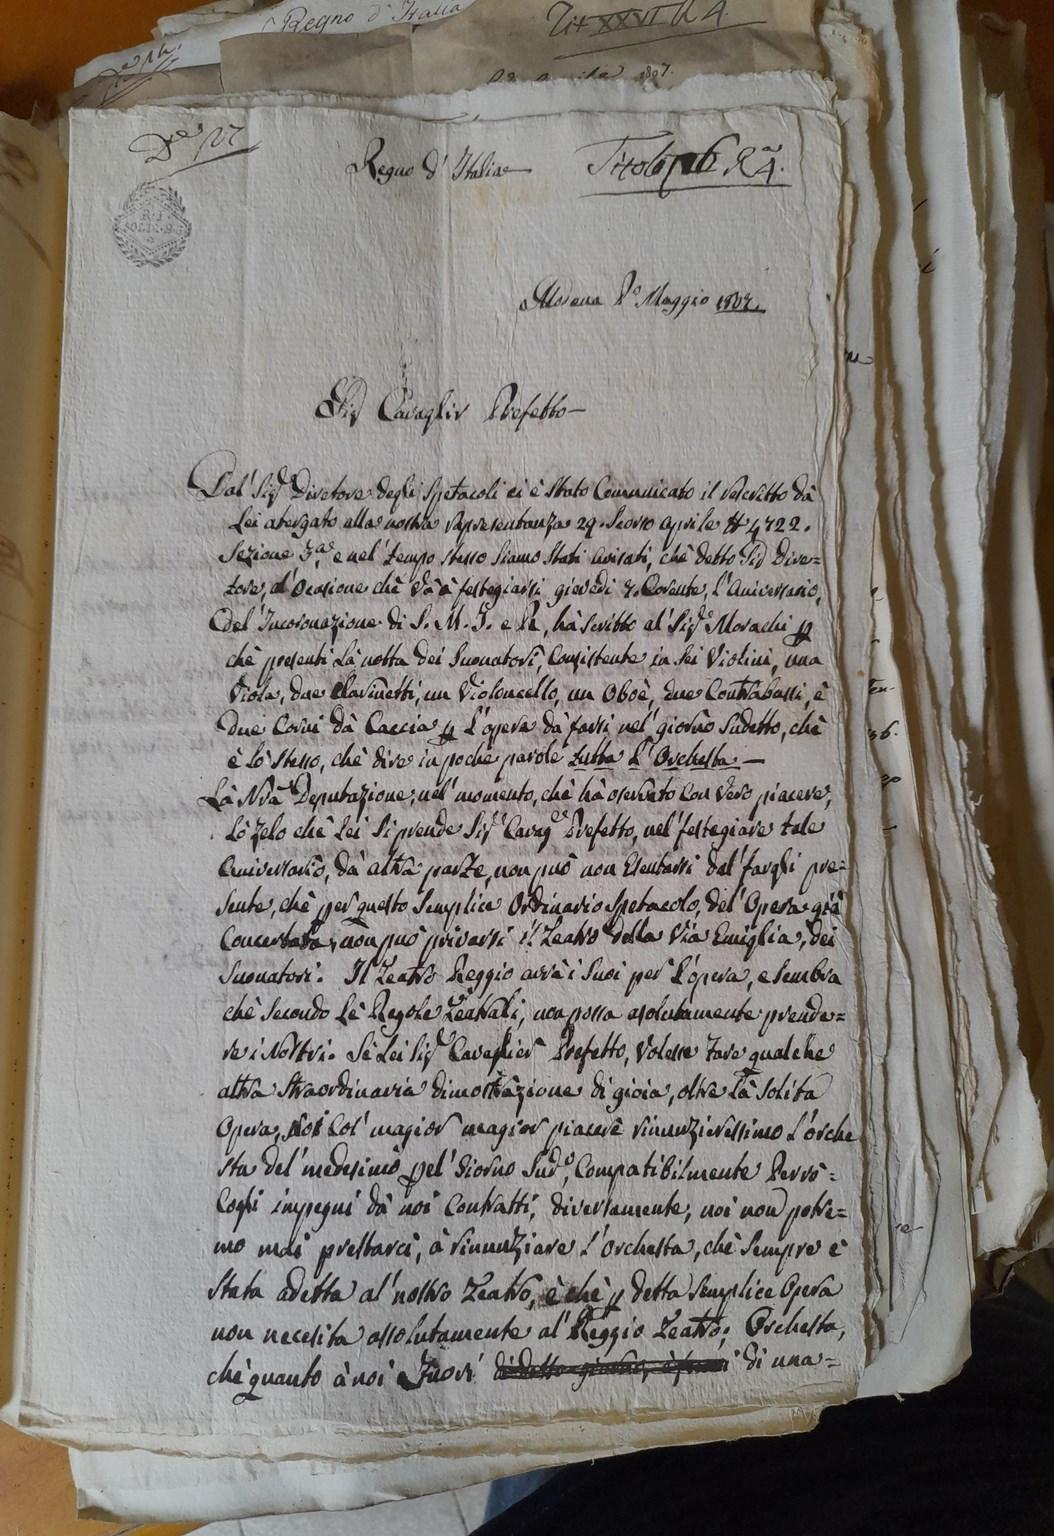 Regno d'Italia
Tit XXVI R 4
1807.
Regno d'Italia
Titolo R.a 4.
SOLI
Modena P.o Maggio 1807.
Sig.r Cavaglier Prefetto
Dal' Sig.r Diretore degli Spetacoli ci è stato Comunicato il rescritto dà
Lei atergato alla nostra rapresentanza 29. scorso Aprile # 4722.
Sezione 3.a, e nel' tempo stesso siamo stati avisati, chè detto Sig.r Dire=
tore, al' ocasione chè và à festegiarsi giovedì 7. Corente, L'Aniversario,
del' Incoronazione di S. M. I. e R., hà scritto al' Sig.r Morachi p
chè presenti Là notta dei Suonatori, Consistente in sei Violini, una
Viola, due Clarinetti, un Violoncello, un Oboè, due Contrabassi, è
due Corni dà Caccia p L'opera dà farsi nel' giorno sudetto, chè
è Lo stesso, chè dire in poche parole tutta L'Orchesta.
Là Nrà Deputazione, nel' momento, chè hà oservato Con vero piacere,
Lo zelo chè Lei si prende Sig.r Cavag.er Prefetto, nel' festegiare tale
Aniversario, dà altra parte, non può non Esentarsi dal' fargli pre=
sente, chè per questo semplice Ordinario Spetacolo, del' Opera già
Concertata, non può privarsi il Teatro della Via Emiglia, dei
Suonatori. Il Teatro Reggio avrà i suoi per L'opera, e sembra
chè secondo Le Regole Teatrali, non possa assolutamente prende=
re i Nostri. Sè Lei Sig.r Cavaglier Prefetto, volesse fare qualche
altra straordinaria dimostrazione di gioia, oltre Là solita
Opera, Noi Col' magior magior piacere rinunzieressimo L'orche
sta del' medesimo pel' Giorno Sud.o, Compatibilmente Perrò=
Cogli impegni dà noi Contratti, diversamente, noi non potre=
mo mai prestarci, à rinunziare L'orchesta, chè sempre è
stata adetta al' nostro Teatro, è chè p detta semplice Opera
non necesita assolutamente al' Reggio Teatro; Orchesta,
chè quanto à noi Fuori di una=